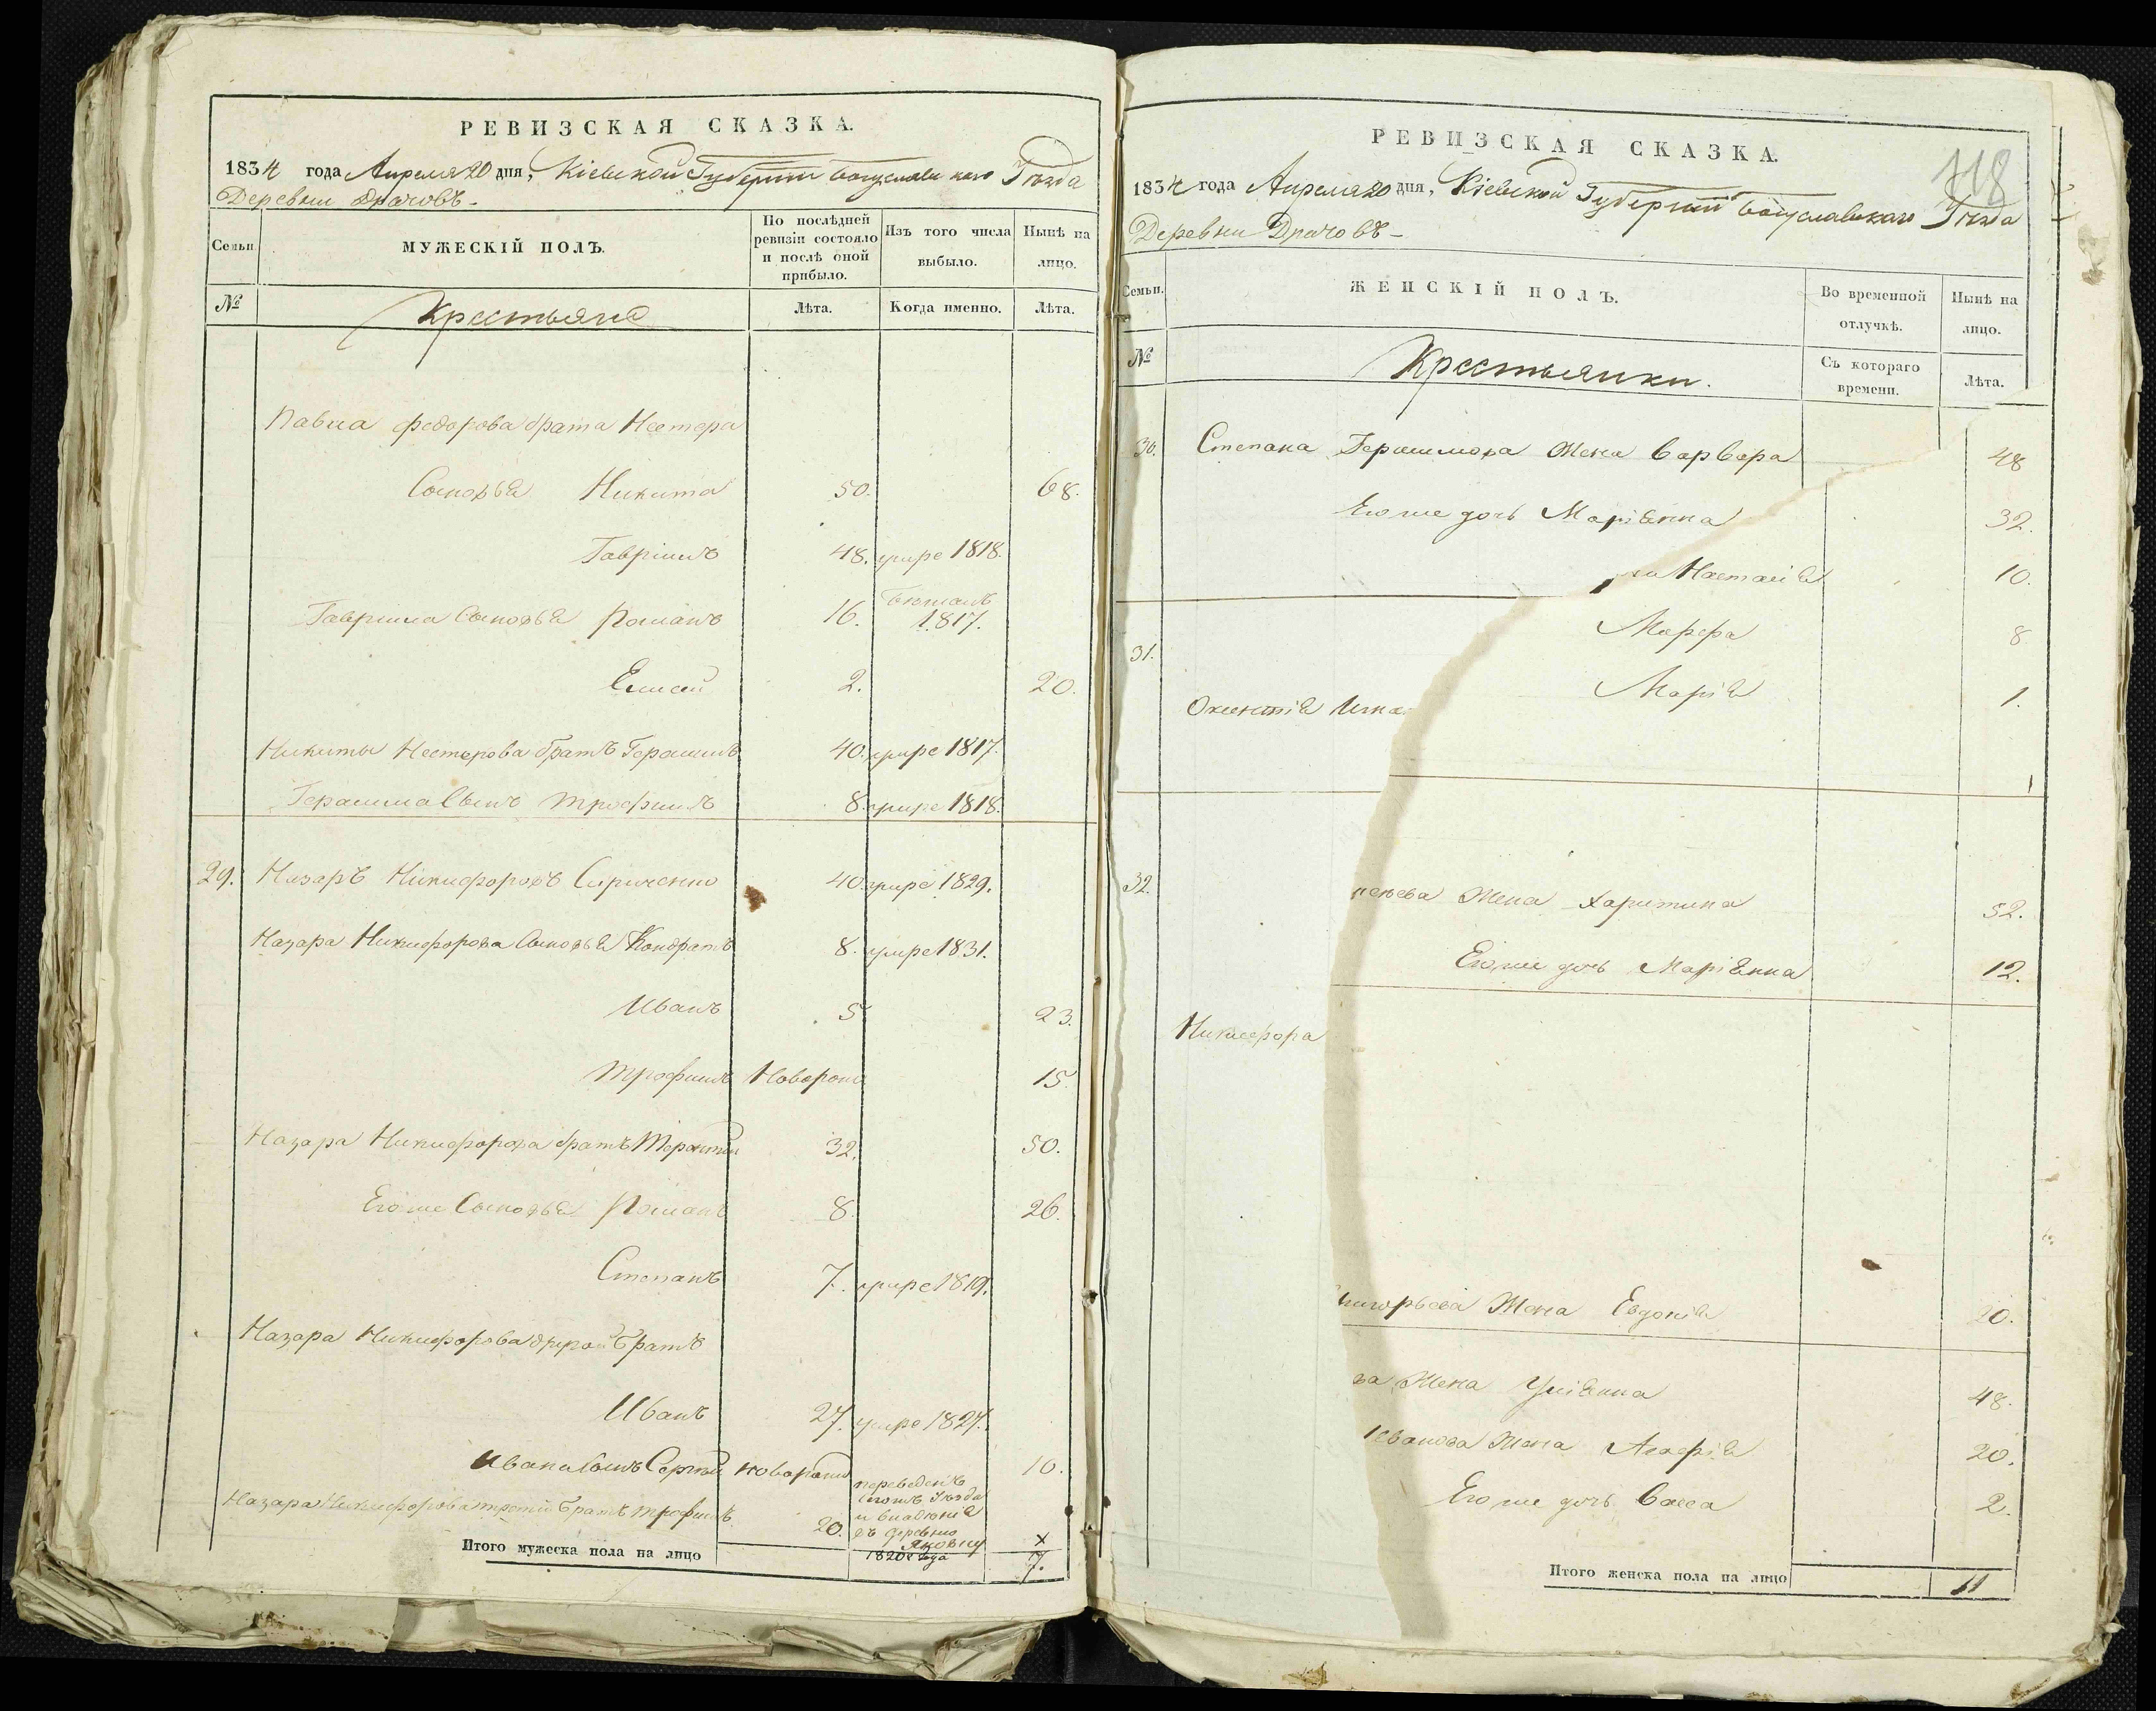 РЕВИЗСКАЯ СКАЗКА.
1834 года Апреля 20 дня, Кіевской Губерніи Богуславскаго Уѣзда
Деревни Драчовъ
Семьи.
МУЖЕСКІЙ ПОЛЪ.
По послѣдней ревизіи состояло и послѣ оной прибыло.
Изъ того числа выбыло.
Нынѣ на лицо.
№
Крестьяне
Лѣта.
Когда именно.
Лѣта.
Павла Федорова брата Нестера
Сыновья Никита 50. 68.
Гавріилъ 48. умре 1818.
Гавріила Сыновья Романъ 16. Бѣжалъ 1817.
Елисей 2. 20.
Никиты Нестерова братъ Герасимъ 40. умре 1817.
Герасима Сынъ Трофимъ 8. умре 1818.
29. Назаръ Никифоровъ 40. умре 1829.
Назара Никифорова Сыновья Кондратъ 8. умре 1831.
Иванъ 5 23.
Трофимъ Новорож 15.
Назара Никифорова братъ Терентій 32. 50.
Его же Сыновья Романъ 8. 26.
Степанъ 7. умре 1819.
Назара Никифорова другой братъ
Иванъ 27. умре 1827.
Ивана Сынъ Сергѣй новорож 10.
Назара Никифорова третій братъ Трофимъ 20. переведенъ
Уѣзда
и владенія
въ деревню
1820 года
Итого мужеска пола на лицо 7.
РЕВИЗСКАЯ СКАЗКА.
118
1834 года Апреля 20 дня, Кіевской Губерніи Богуславскаго Уѣзда
Деревни Драчовъ
Семьи.
ЖЕНСКІЙ ПОЛЪ.
Во временной отлучкѣ.
Нынѣ на лицо.
№
Крестьянки.
Съ котораго времени.
Лѣта.
30. Степана Герасимова Жена Варвара 48
Его же дочь Маріянна 32.
Настасія 10.
Марфа 8
31.
Марія 1.
32.
Жена Харитина 52.
Его же дочь Маріянна 12.
Никифора
Жена Евдокія 20.
ва Жена Уліянна 48.
Жена Агафія 20.
Его же дочь Васса 2.
Итого женска пола на лицо 11